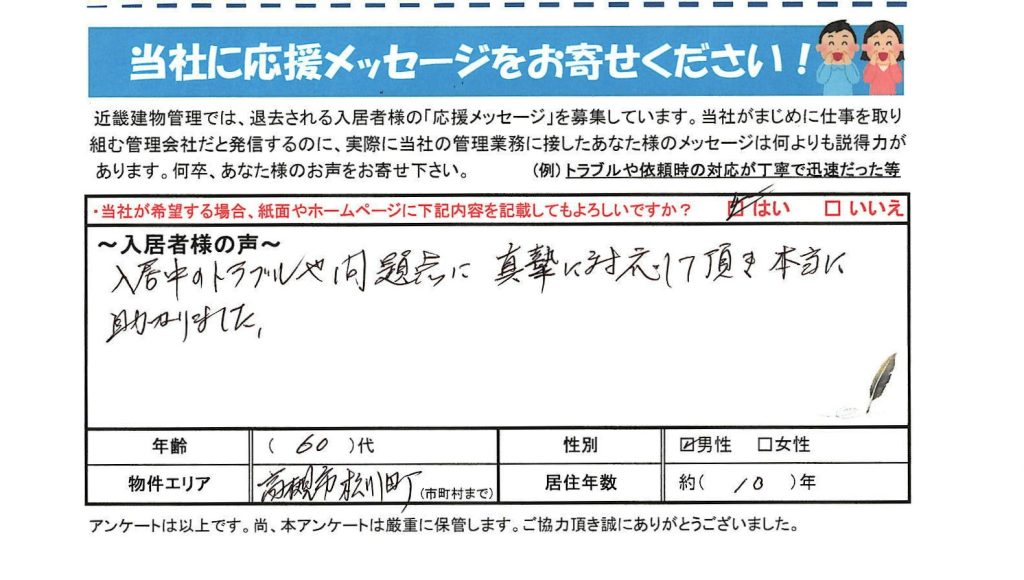 当社に応援メッセージをお寄せください！
近畿建物管理では、退去される入居者様の「応援メッセージ」を募集しています。当社がまじめに仕事を取り
組む管理会社だと発信するのに、実際に当社の管理業務に接したあなた様のメッセージは何よりも説得力が
あります。何卒、あなた様のお声をお寄せ下さい。 （例）トラブルや依頼時の対応が丁寧で迅速だった等
・当社が希望する場合、紙面やホームページに下記内容を記載してもよろしいですか？ ☑ はい □ いいえ
～入居者様の声～
入居中のトラブルや問題点に 真摯に対応して頂き本当に
助かりました。
年齢 （ 60 ）代 性別 ☑男性 □女性
物件エリア 高槻市 川町 （市町村まで） 居住年数 約（ 10 ）年
アンケートは以上です。尚、本アンケートは厳重に保管します。ご協力頂き誠にありがとうございました。